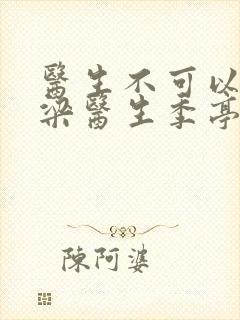 醫生不可以
梁醫生季亭
陳阿婆